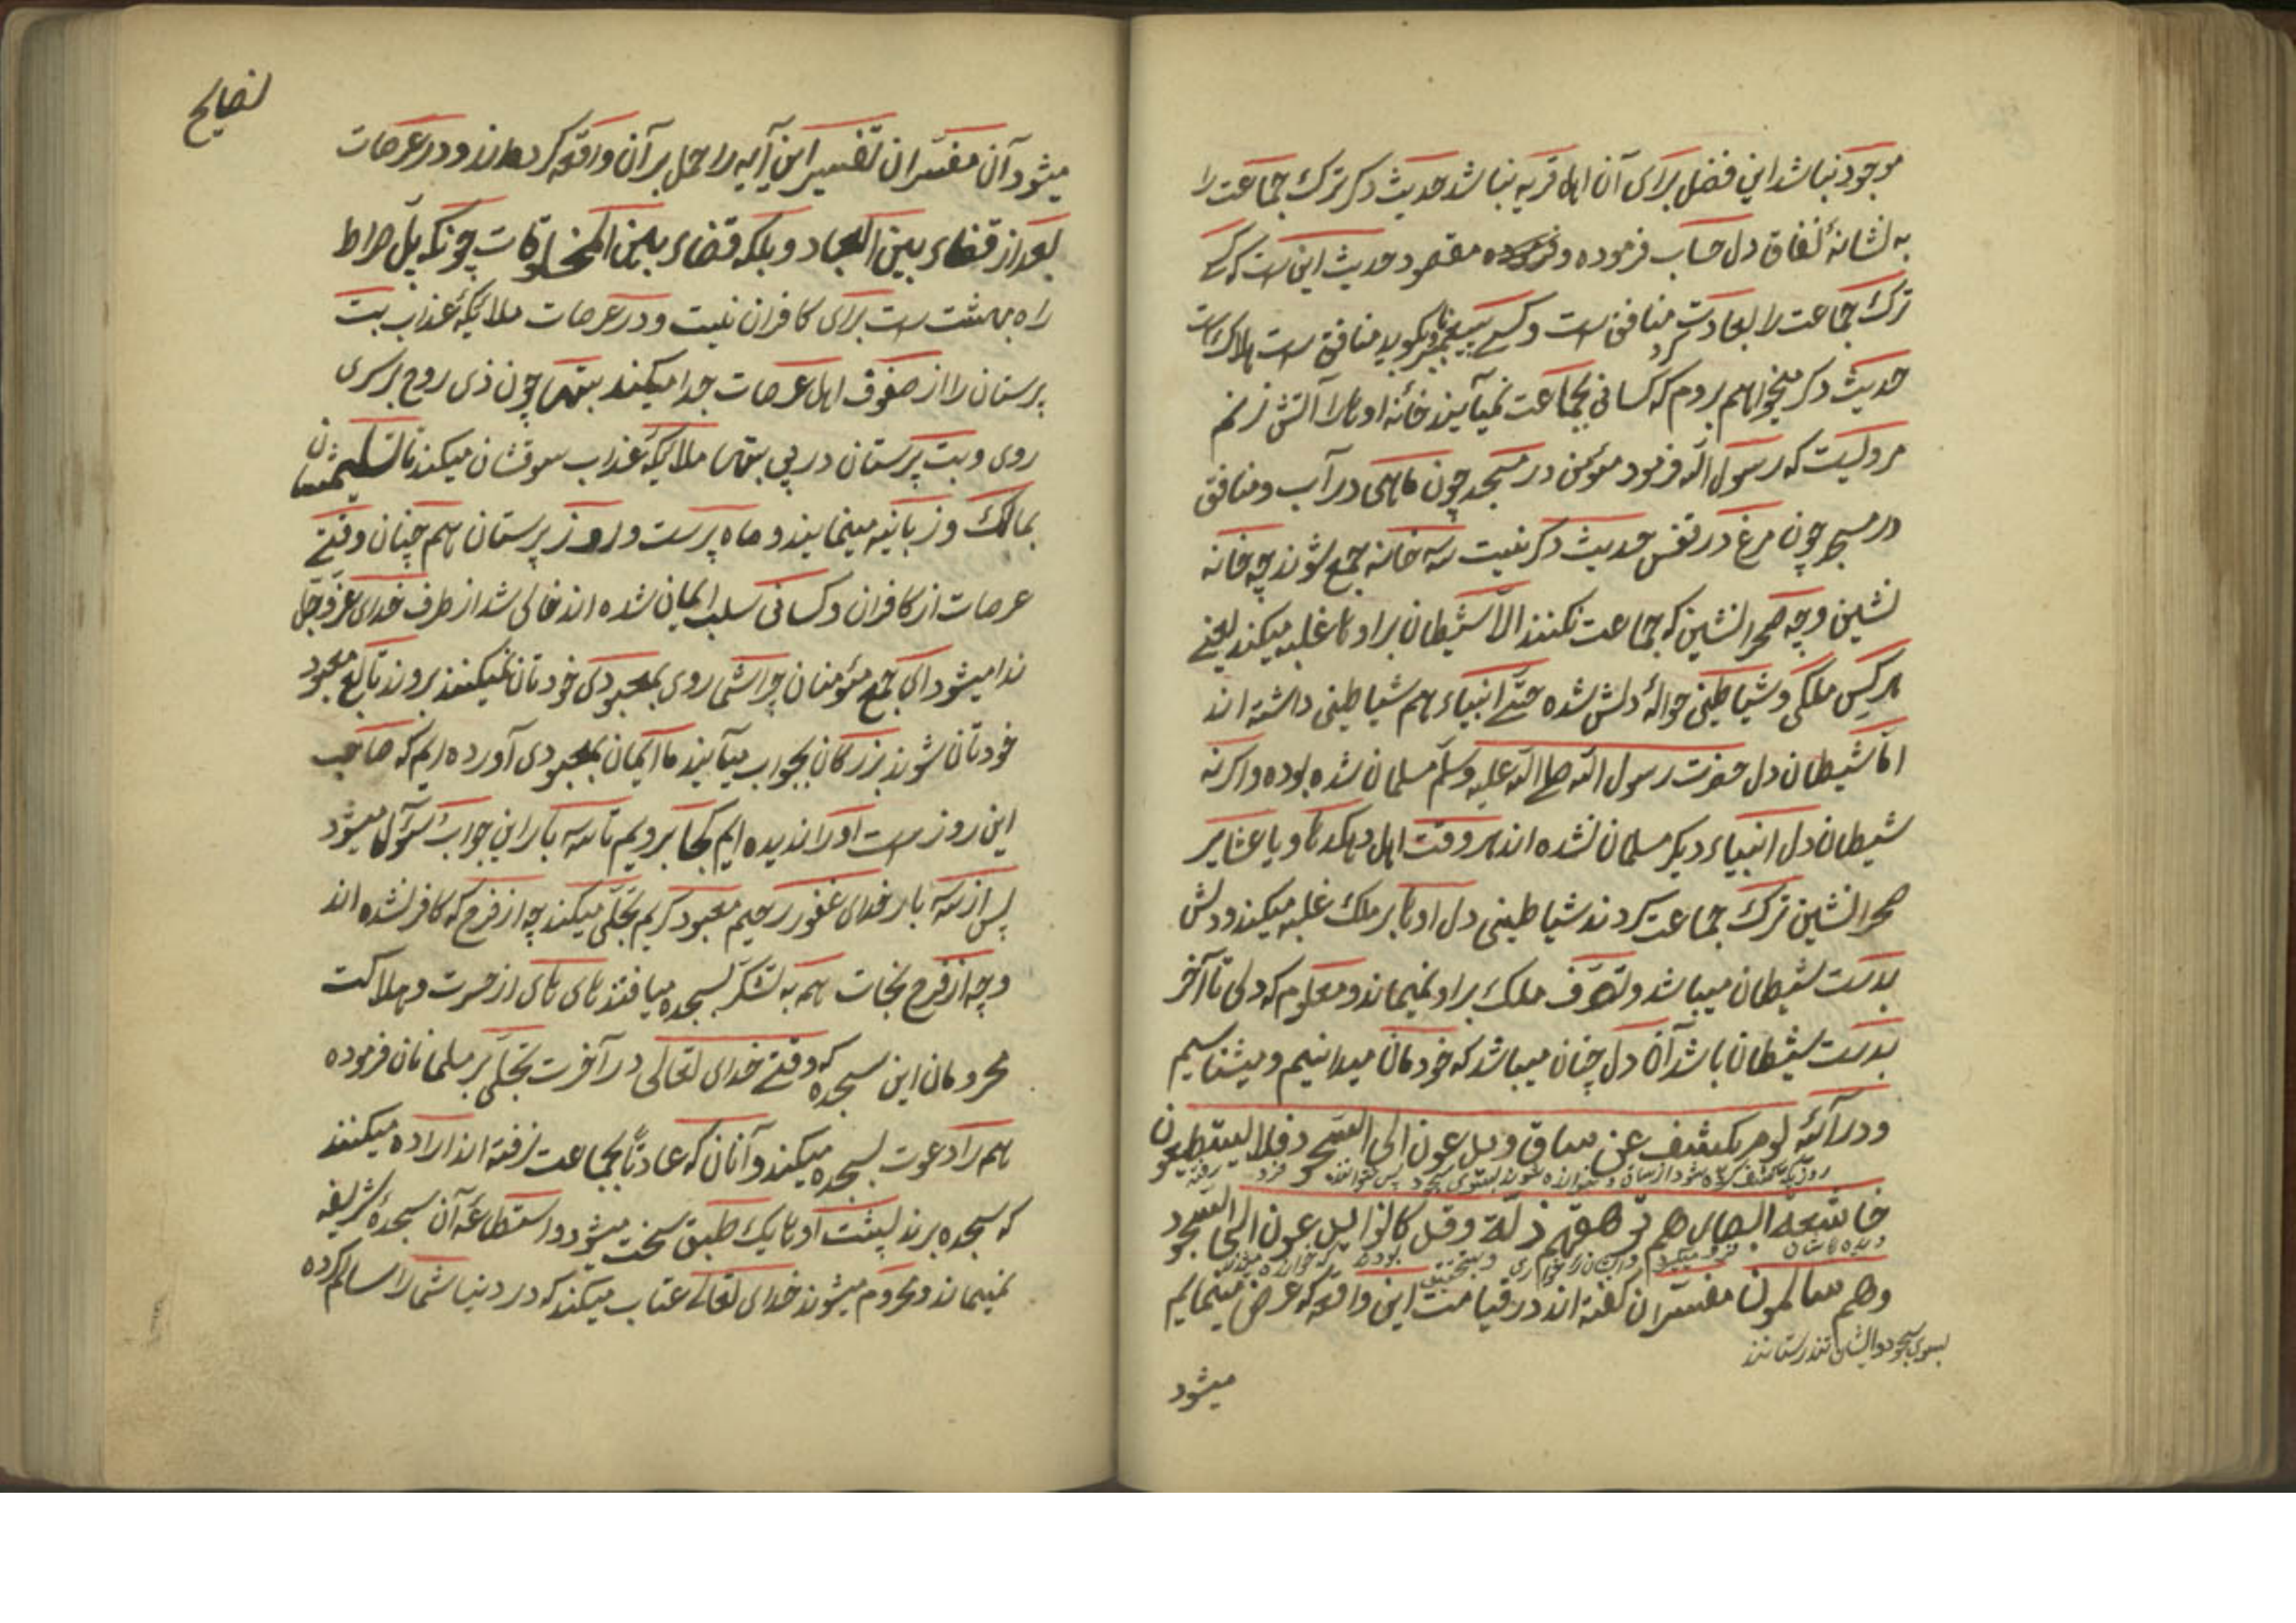 موجود نباشد این فضل برای آن اهل قریه نباشد حدیث دکر ترک جماعت را
به نشانهٔ نفاق دل حساب فرموده و فرموده مقصود حدیث این است که کسے
ترک جماعت را بعادت کرد منافق است و کسے پیغمبر باو بکوید منافق است هلاک است
حدیث دکر میخواهم بروم که کسانی بجماعت نمیآیند خانهٔ اوها را آتش زنم
مرویست که رسول الله فرمود مؤمن در مسجد چون ماهی در آب و منافق
در مسجد چون مرغ در قفس حدیث دکر نیست سه خانه جمع شوند چه خانه
نشین و چه صحرانشین که جماعت نکنند الّا شیطان بر اوها غلبه میکند یعنے
هر کس ملکی و شیاطینی حوالهٔ دلش شده حتّے انبیاء هم شیاطینی داشته اند
امّا شیطان دل حضرت رسول الله صلے الله علیه وسلّم مسلمان شده بوده و اکرنه
شیطان دل انبیاء دیکر مسلمان نشده اند هر وقت اهل دهکدها و یا عشایر
صحرانشین ترک جماعت کردند شیاطینی دل اوها بر ملک غلبه میکند و دلش
بدست شیطان میباشد و تصرّف ملک بر او نمیماند و معلوم که دلی تا آخر
بدست شیطان باشد آن دل چنان میباشد که خودمان میدانیم و میشناسیم
و در آئهٔ یوم یکشف عن ساق ویدعون الی السّجود فلا یستطیعون
روزیکه کشف کرده شود از ساق و خوانده شوند بسوی سجود پس نتوانند
خاشعة ابصارهم ترهقهم ذلّة وقد کانوا یدعون الی السّجود
وهم سالمون مفسّران کفته اند در قیامت این واقعه که عرض مینمایم
بسوی سجود و ایشان تندرستانند
میشود
نصایح
میشود آن مفسّران تفسیر این آیه را حمل بر آن واقعه کرده اند و در عرصات
بعد از قضاء بین العباد و بلکه قضاء بین المخلوقات چونکه پل صراط
راه بهشت است برای کافران نیست و در عرصات ملائکهٔ عذاب بت
پرستان را از صفوف اهل عرصات جدا میکنند بتها چون ذی روح بر سری
روی و بت پرستان در پی بتها ملائکهٔ عذاب سوقشان میکند تا تسلیمشان
بمالک و زبانیه مینمایند و ماه پرست و روز پرستان هم چنان وقتے
عرصات از کافران و کسانی سلب ایمان شده اند خالی شد از طرف خدای عزّوجلّ
ندا میشود ای جمع مؤمنان چرا شما روی بمعبودی خودتان نمیکنند بروند تابع معبود
خودتان شوند بزرکان بجواب میآیند ما ایمان بمعبودی آورده ایم که صاحب
این روز است او را ندیده ایم کجا برویم تا سه بار این جواب و سؤال میشود
پس از سه بار خدای غفور رحیم معبود کریم تجلّی میکند چه از فرح که کافر نشده اند
و چه از فرح نجات همه به تشکر بسجده میافتند های های از حسرت و هلاکت
محرومان این سجده که وقتے خدای تعالی در آخرت تجلّی بر مسلمانان فرموده
هم را دعوت بسجده میکند و آنان که عادتاً بجماعت نرفته اند اراده میکنند
که سجده برند پشت اوها یک طبق سخت میشود و استطاعهٔ آن سجدهٔ شریفه
نمیماند و محروم میشوند خدای تعالے عتاب میکند که در دنیا شما را سالم کرده